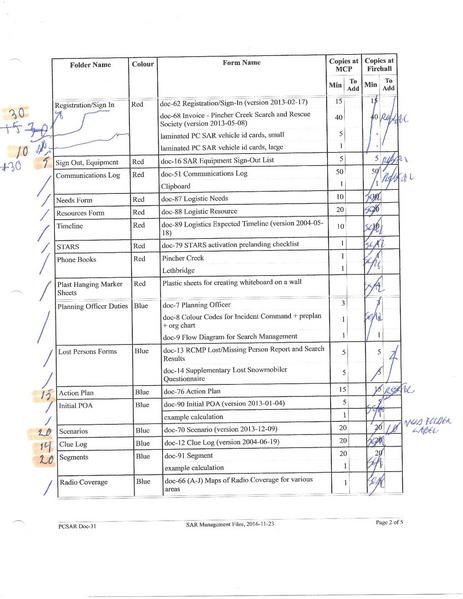 Folder Name Colour Form Name Copies at MCP Copies at Firehall
Min To Add Min To Add
Registration/Sign In Red doc-62 Registration/Sign-In (version 2013-02-17) 15 15
30 doc-68 Invoice - Pincher Creek Search and Rescue Society (version 2013-05-08) 40 40
laminated PC SAR vehicle id cards, small 5
10 laminated PC SAR vehicle id cards, large 1
+30 5 Sign Out, Equipment Red doc-16 SAR Equipment Sign-Out List 5 5
Communications Log Red doc-51 Communications Log 50 50
Clipboard 1 1
Needs Form Red doc-87 Logistic Needs 10
Resources Form Red doc-88 Logistic Resource 20
Timeline Red doc-89 Logistics Expected Timeline (version 2004-05-18) 10
STARS Red doc-79 STARS activation prelanding checklist 1
Phone Books Red Pincher Creek 1
Lethbridge 1
Plast Hanging Marker Sheets Red Plastic sheets for creating whiteboard on a wall
Planning Officer Duties Blue doc-7 Planning Officer 3 3
doc-8 Colour Codes for Incident Command + preplan + org chart 1
doc-9 Flow Diagram for Search Management 1 1
Lost Persons Forms Blue doc-13 RCMP Lost/Missing Person Report and Search Results 5 5
doc-14 Supplementary Lost Snowmobiler Questionnaire 5 5
15 Action Plan Blue doc-76 Action Plan 15 15
Initial POA Blue doc-90 Initial POA (version 2013-01-04) 5
example calculation 1
20 Scenarios Blue doc-70 Scenario (version 2013-12-09) 20 20 NEED FOLDER LABEL
14 Clue Log Blue doc-12 Clue Log (version 2004-06-19) 20 20
20 Segments Blue doc-91 Segment 20 20
example calculation 1
Radio Coverage Blue doc-66 (A-J) Maps of Radio Coverage for various areas 1
PCSAR Doc-31 SAR Management Files, 2016-11-23 Page 2 of 5